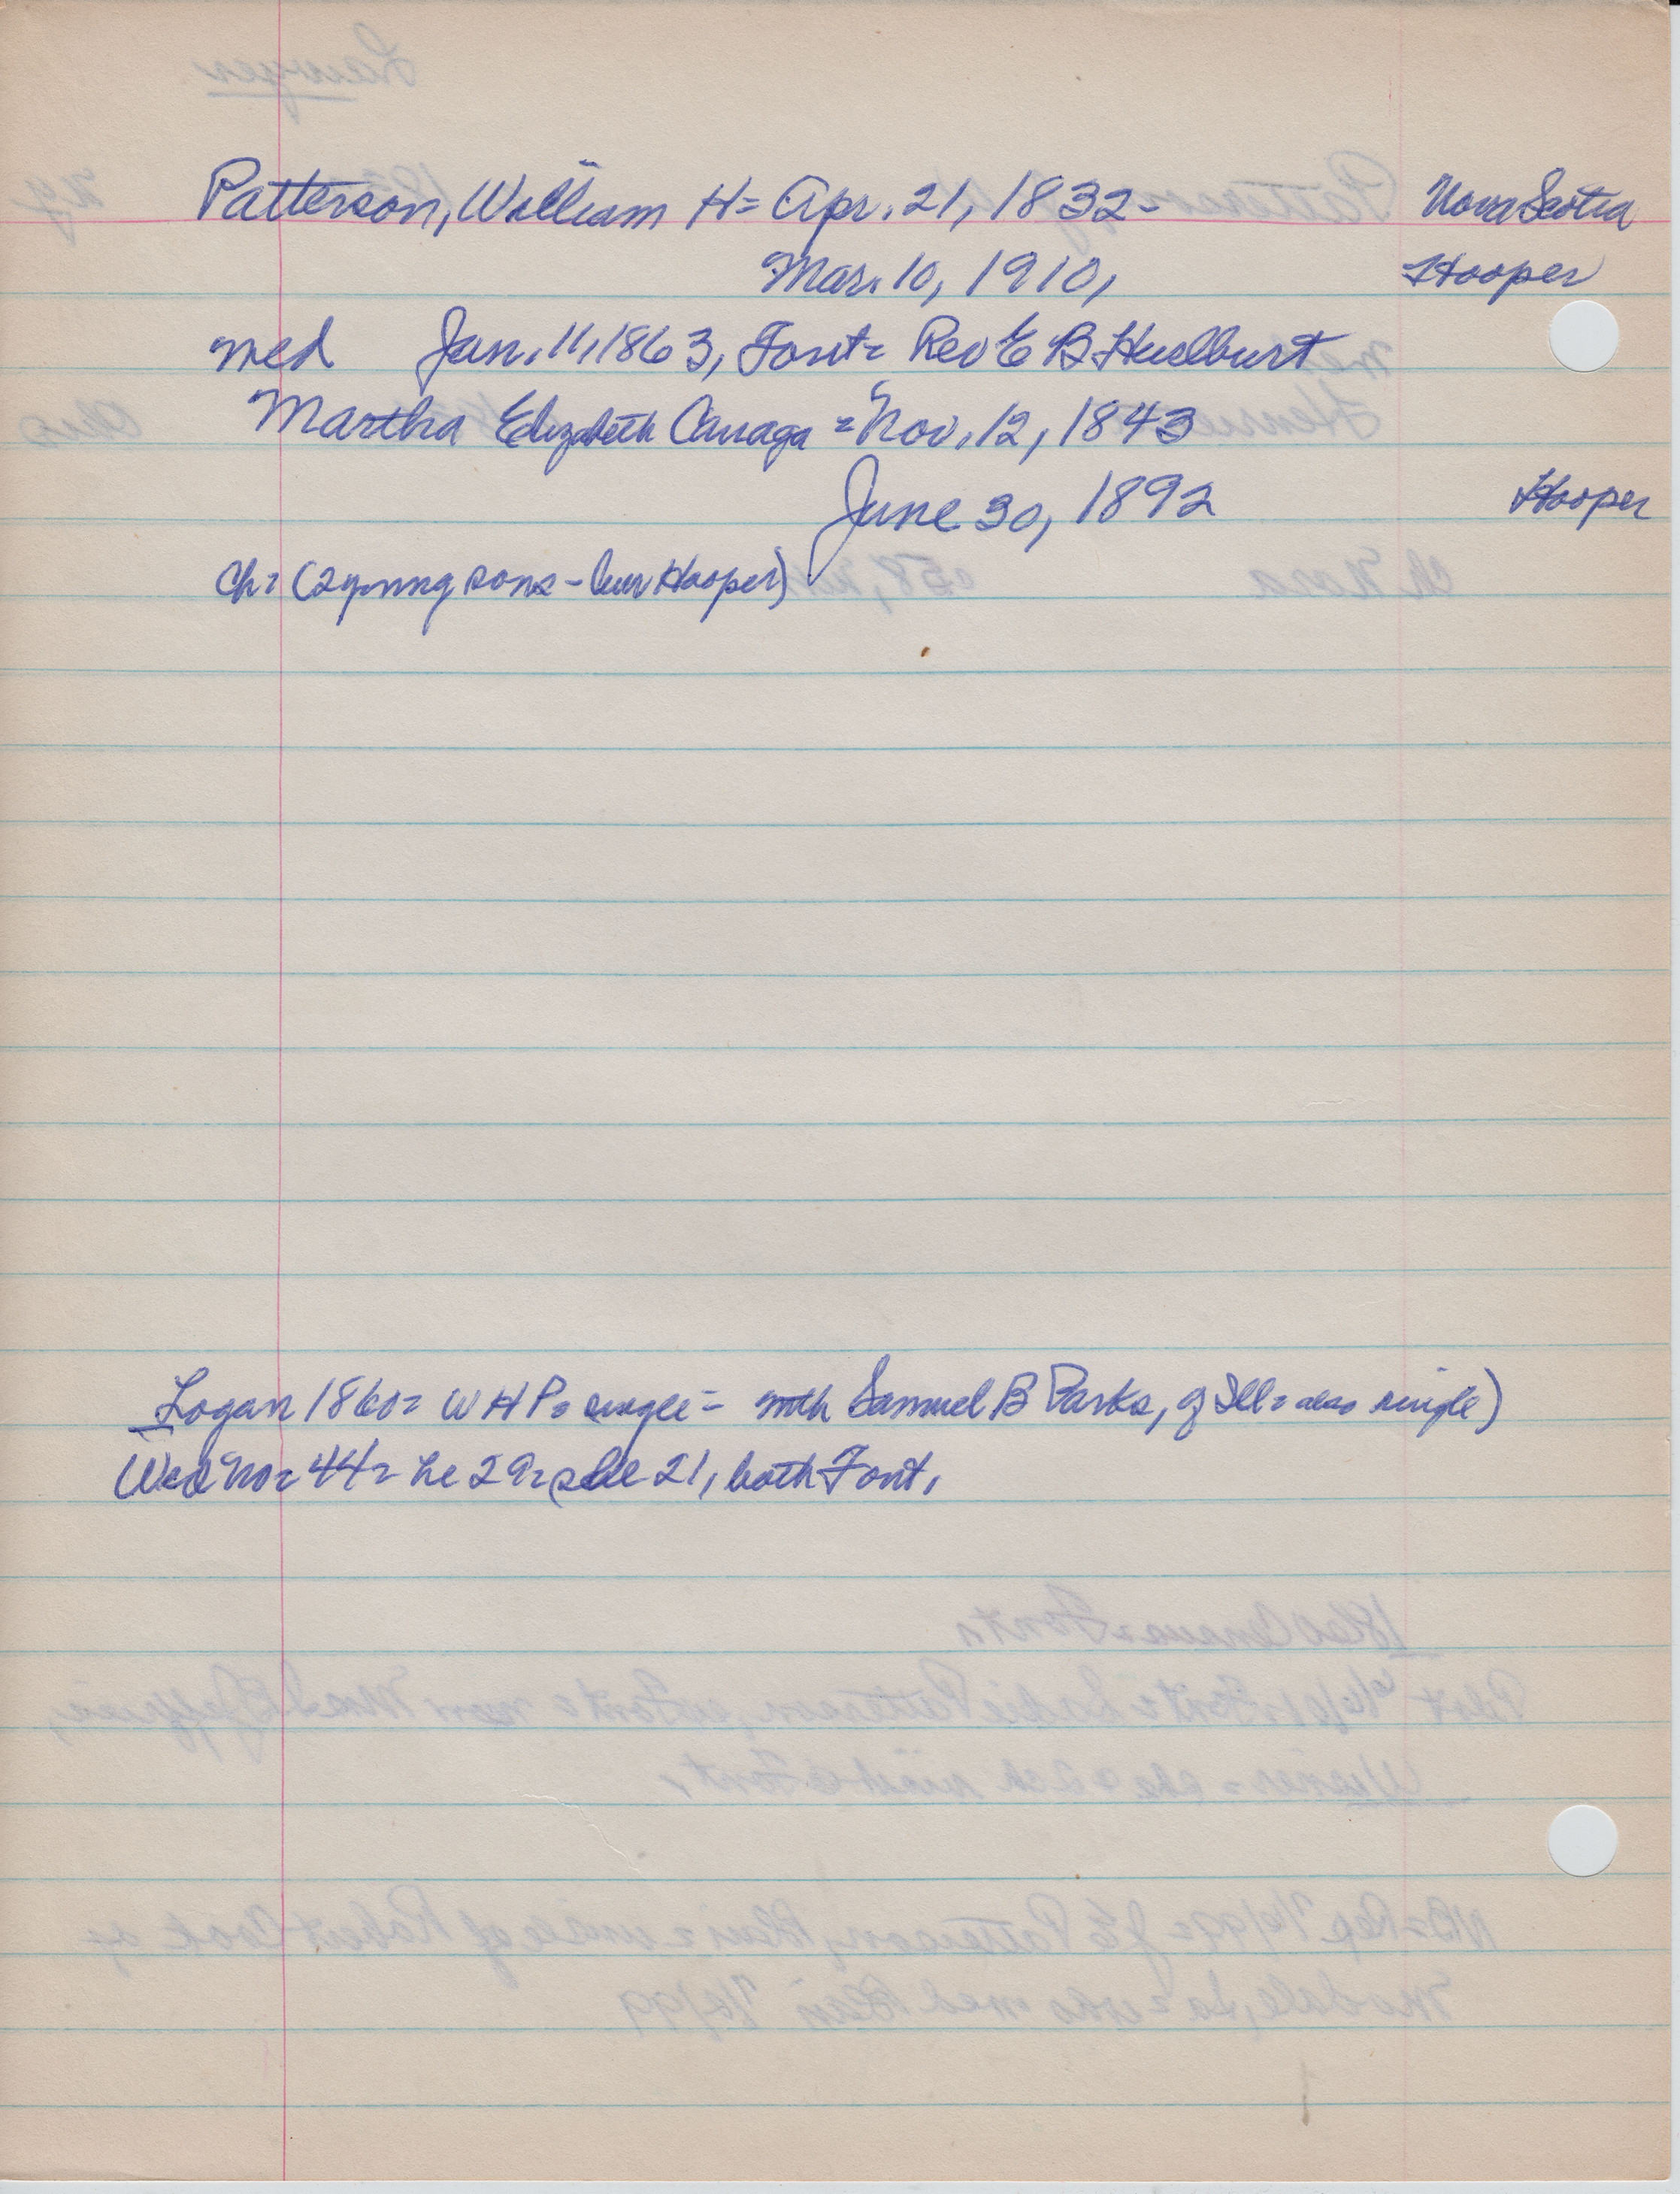 Patterson, William H = Apr. 21, 1832- Nova Scotia
Mar. 10, 1910, Hooper
med Jan. 11, 1863, Font = Rev E B Huelburt
Martha Elizabeth Canaga = Nov. 12, 1843
June 30, 1892 Hooper
Ch = (2 young sons - bur Hooper)
Logan 1860 = W H P = single = with Samuel B Parks, of Ill = also single)
Wed No = 44 = he 29 = she 21, both Font.